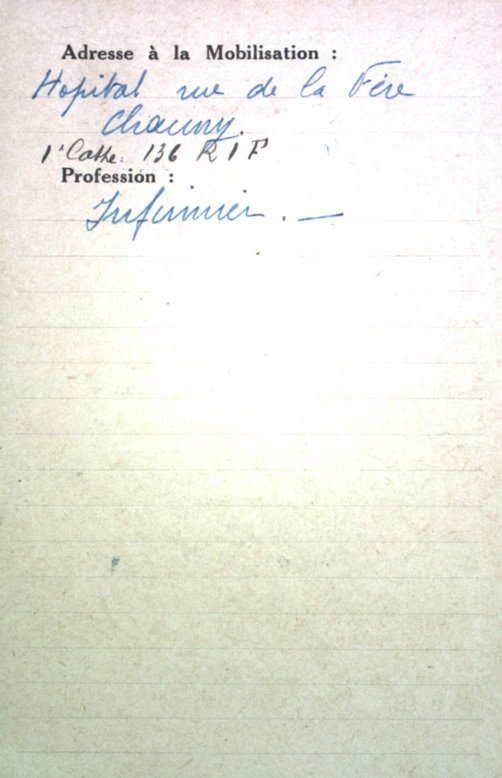 Adresse à la Mobilisation :
Hopital rue de la Fère
Chauny.
136 R I F
Profession :
Infirmier. —